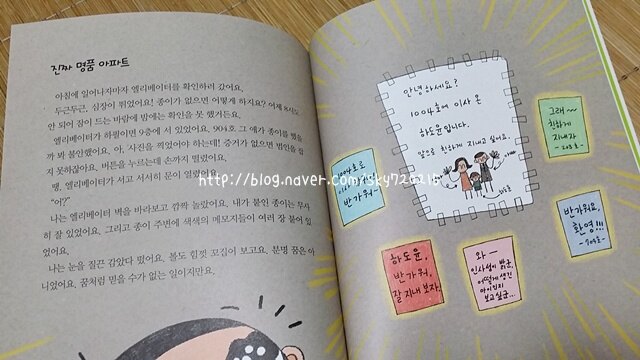 진짜 명품 아파트
아침에 일어나자마자 엘리베이터를 확인하러 갔어요.
두근두근, 심장이 뛰었어요! 종이가 없으면 어떻게 하지요? 어제 8시도
안 되어 잠이 드는 바람에 밤에는 확인을 못 했거든요.
엘리베이터가 하필이면 9층에 서 있었어요. 904호 그 애가 종이를 뗐을
까 봐 불안했어요. 아, 사진을 찍었어야 하는데! 증거가 없으면 범인을 잡
지 못하잖아요. 버튼을 누르는데 손까지 떨렸어요.
땡, 엘리베이터가 서고 서서히 문이 열렸어요.
"어?"
나는 엘리베이터 벽을 바라보고 깜짝 놀랐어요. 내가 붙인 종이는 무사
히 잘 있었어요. 그리고 종이 주변에 색색의 메모지들이 여러 장 붙어 있
었어요.
나는 눈을 질끈 감았다 떴어요. 볼도 힘껏 꼬집어 보고요. 분명 꿈은 아
니었어요. 꿈처럼 믿을 수가 없는 일이지만요.
안녕하세요?
1004호에 이사 온
하도윤입니다.
앞으로 친하게 지내고 싶어요.
그래~
친하게
지내자
1004호도
반가워~
반가워요,
환영!!!
하도윤,
반가워,
잘 지내 보자.
와—
인사성이 밝군,
어떻게 생긴
아이인지
보고 싶군...
http://blog.naver.com/sky720215